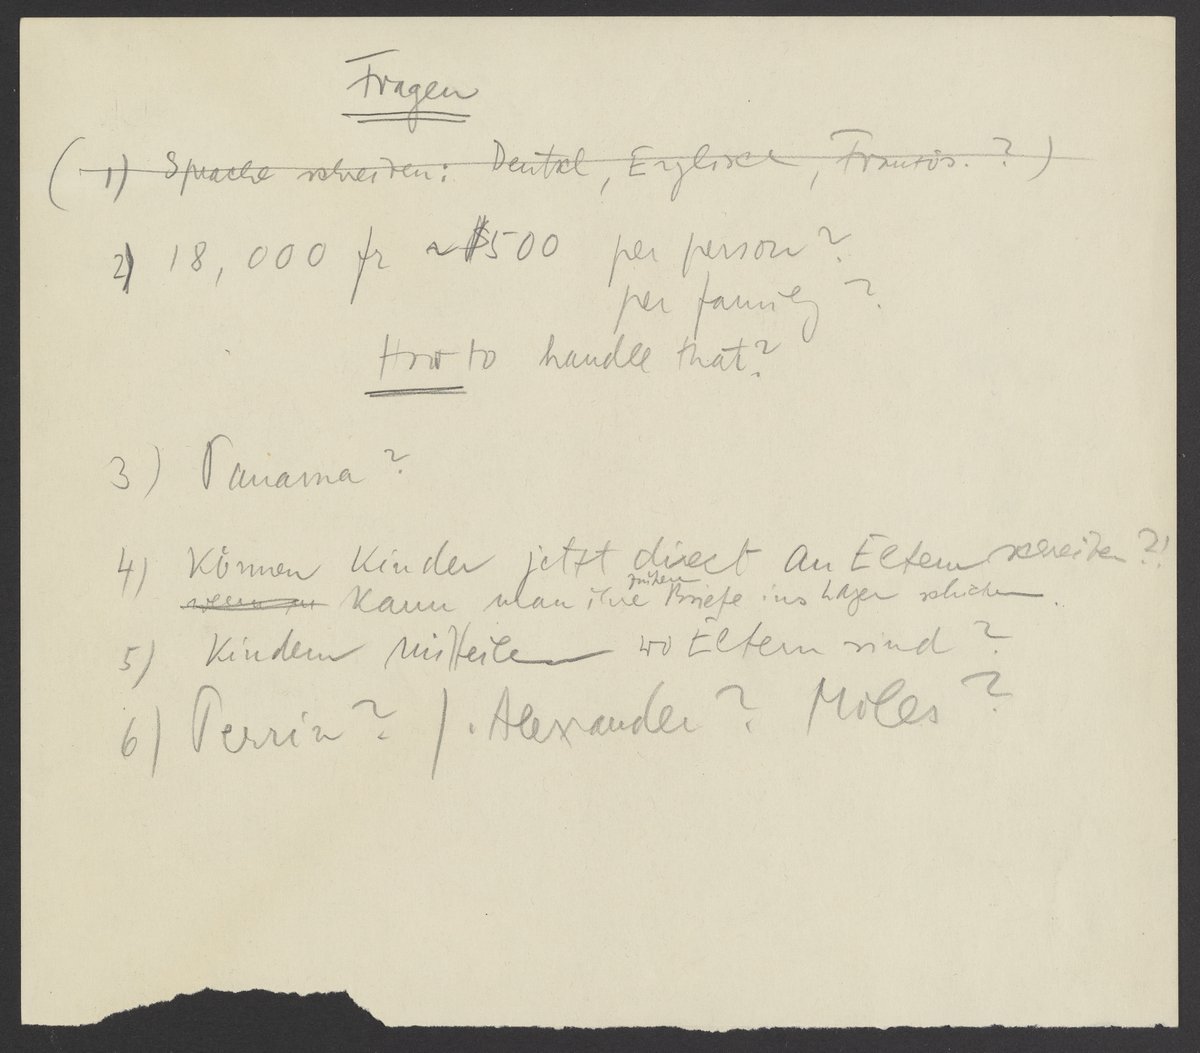 Fragen
(1) Sprache schreiben: Deutsch, Englisch, Französ. ?)
2) 18,000 fr ~ $500 per person?
per family?
How to handle that?
3) Panama?
4) Können Kinder jetzt direct an Eltern schreiben?!
Kann man ihre Briefe ins Lager schicken.
5) Kindern mitteilen wo Eltern sind?
6) Perrin? / Alexander? Moles?